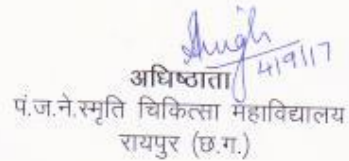 4/9/17
अधिष्ठाता
पं.ज.ने.स्मृति चिकित्सा महाविद्यालय
रायपुर (छ.ग.)